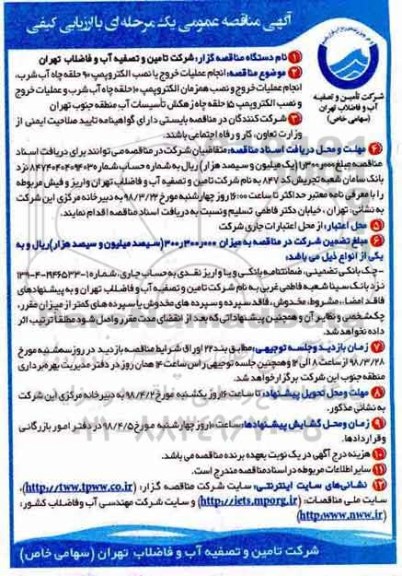 آگهی مناقصه عمومی یک مرحله ای با ارزیابی کیفی
شرکت تأمین و تصفیه
آب و فاضلاب تهران
(سهامی خاص)
۱ نام دستگاه مناقصه گزار: شرکت تامین و تصفیه آب و فاضلاب تهران
۲ موضوع مناقصه: انجام عملیات خروج یا نصب الکتروپمپ ۹۰ حلقه چاه آب شرب،
انجام عملیات خروج و نصب همزمان الکتروپمپ ۱۰ حلقه چاه آب شرب و عملیات خروج
و نصب الکتروپمپ ۱۵ حلقه چاه زهکش تأسیسات آب منطقه جنوب تهران
۳ شرکت کنندگان در مناقصه بایستی دارای گواهینامه تایید صلاحیت ایمنی از
وزارت تعاون، کار و رفاه اجتماعی باشند.
۴ مهلت و محل دریافت اسناد مناقصه: متقاضیان شرکت در مناقصه می توانند برای دریافت اسناد
مناقصه مبلغ ۱٫۳۰۰٫۰۰۰ (یک میلیون و سیصد هزار) ریال به شماره حساب شماره نزد
بانک سامان شعبه تجریش کد ۸۴۷ به نام شرکت تامین و تصفیه آب و فاضلاب تهران واریز و فیش مربوطه
را با معرفی نامه معتبر حداکثر تا ساعت ۱۶:۰۰ روز چهارشنبه مورخ ۹۸/۳/۲۲ به دبیرخانه مرکزی این شرکت
به نشانی: تهران، خیابان دکتر فاطمی تسلیم و نسبت به دریافت اسناد مناقصه اقدام نمایند.
۵ محل اعتبار: از محل اعتبارات جاری شرکت
۶ مبلغ تضمین شرکت در مناقصه به میزان ۳۰۰٫۳۰۰٫۰۰۰ (سیصد میلیون و سیصد هزار) ریال و به
یکی از انواع ذیل می باشد:
- چک بانکی تضمینی، ضمانتنامه بانکی و یا واریز نقدی به حساب جاری شماره
نزد بانک سینا شعبه فاطمی غربی به نام شرکت تامین و تصفیه آب و فاضلاب تهران و به پیشنهادهای
فاقد امضاء، مشروط، مخدوش، فاقد سپرده و سپرده های مخدوش یا سپرده های کمتر از میزان مقرر،
چک شخصی و نظایر آن و همچنین پیشنهاداتی که بعد از انقضای مدت مقرر واصل شود مطلقاً ترتیب اثر
داده نخواهد شد.
۷ زمان بازدید و جلسه توجیهی: مطابق بند ۲۴ اوراق شرایط مناقصه بازدید در روز سه شنبه مورخ
۹۸/۳/۲۸ از ساعت ۸ الی ۱۴ و همچنین جلسه توجیهی راس ساعت ۱۴ همان روز در دفتر مدیریت بهره برداری
منطقه جنوب این شرکت برگزار خواهد شد.
۸ مهلت و محل تحویل پیشنهاد: تا ساعت ۱۶ روز یکشنبه مورخ ۹۸/۴/۲ به دبیرخانه مرکزی این شرکت
به نشانی مذکور.
۹ زمان و محل گشایش پیشنهادها: ساعت ۱۰ روز چهارشنبه مورخ ۹۸/۴/۵ در دفتر امور بازرگانی
و قراردادها.
۱۰ هزینه درج آگهی در یک نوبت بعهده برنده مناقصه می باشد.
۱۱ سایر اطلاعات مربوطه در اسناد مناقصه مندرج است.
۱۲ نشانی های سایت اینترنتی: سایت شرکت مناقصه گزار: (http://tww.tpww.co.ir)،
سایت ملی مناقصات: (http://iets.mporg.ir) و سایت شرکت مهندسی آب و فاضلاب کشور:
(http:www.nww.ir)
شرکت تامین و تصفیه آب و فاضلاب تهران (سهامی خاص)